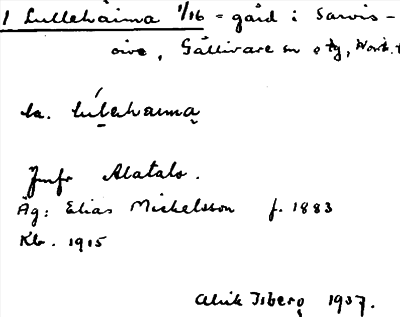 1 Lullehaima 1/16 = gård i Sarvis-
oive, Gällivare sn o tg, Norrb.
la. lúlehaima
Jmfr Alatalo.
Äg: Elias Mickelsson f. 1883
Kb. 1915
Alrik Isberg 1937.